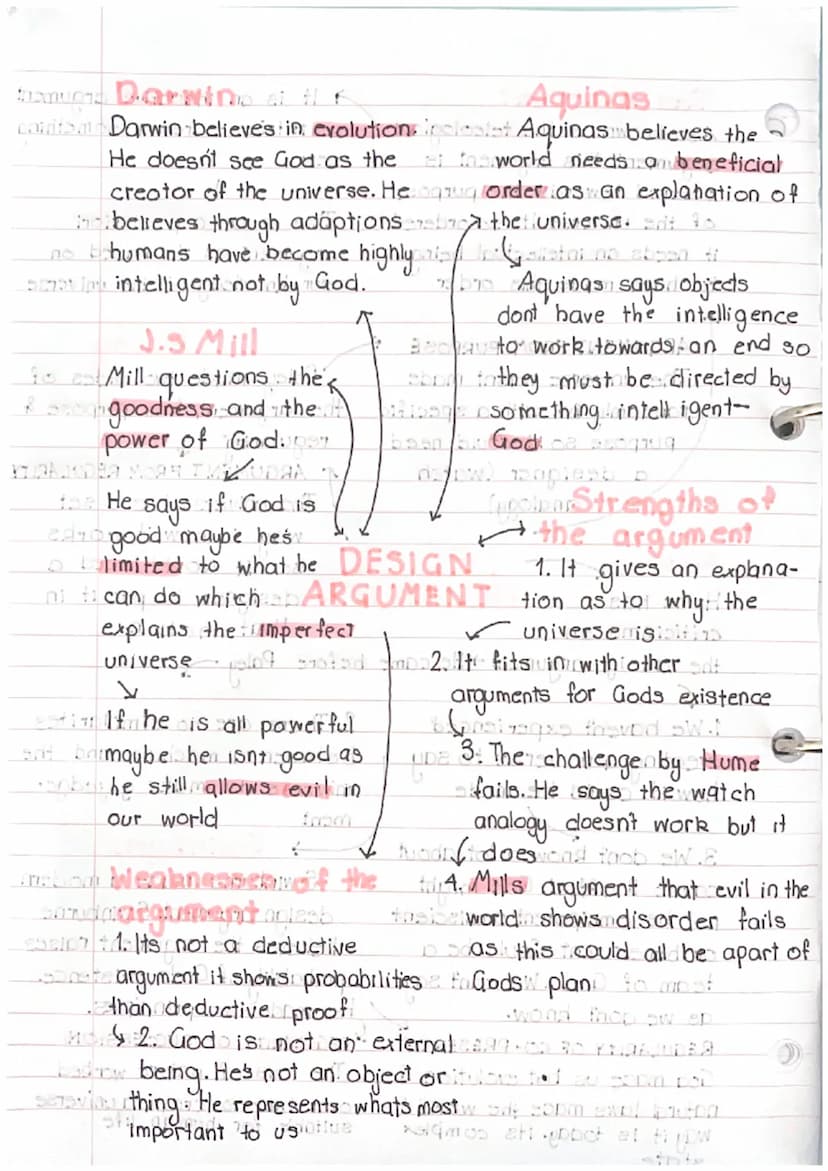 Darwin
Darwin believes in evolution.
He doesn't see God as the
creator of the universe. He
believes through adaptions
humans have become highly
intelligent not by God.
J.S Mill
Mill questions the
goodness and the
power of God.
He says if God is
good maybe he's
limited to what he
can do which
explains the imperfect
universe
If he is all powerful
maybe he isnt good as
he still allows evil in
our world
DESIGN
ARGUMENT
Aquinas
Aquinas believes the
world needs a beneficial
order as an explanation of
the universe.
Aquinas says objects
dont have the intelligence
to work towards an end so
they must be directed by
something intelligent-
God
Strengths of
the argument
1. It gives an explana-
tion as to why the
universe is
2. It fits in with other
arguments for Gods existence
3. The challenge by Hume
fails. He says the watch
analogy doesn't work but it
does
4. Mills argument that evil in the
world shows disorder fails
as this could all be apart of
Gods plan
Weaknesses of the
argument
1. Its not a deductive
argument it shows probabilities
than deductive proof
2. God is not an external
being. He's not an object or
thing. He represents whats most
important to us